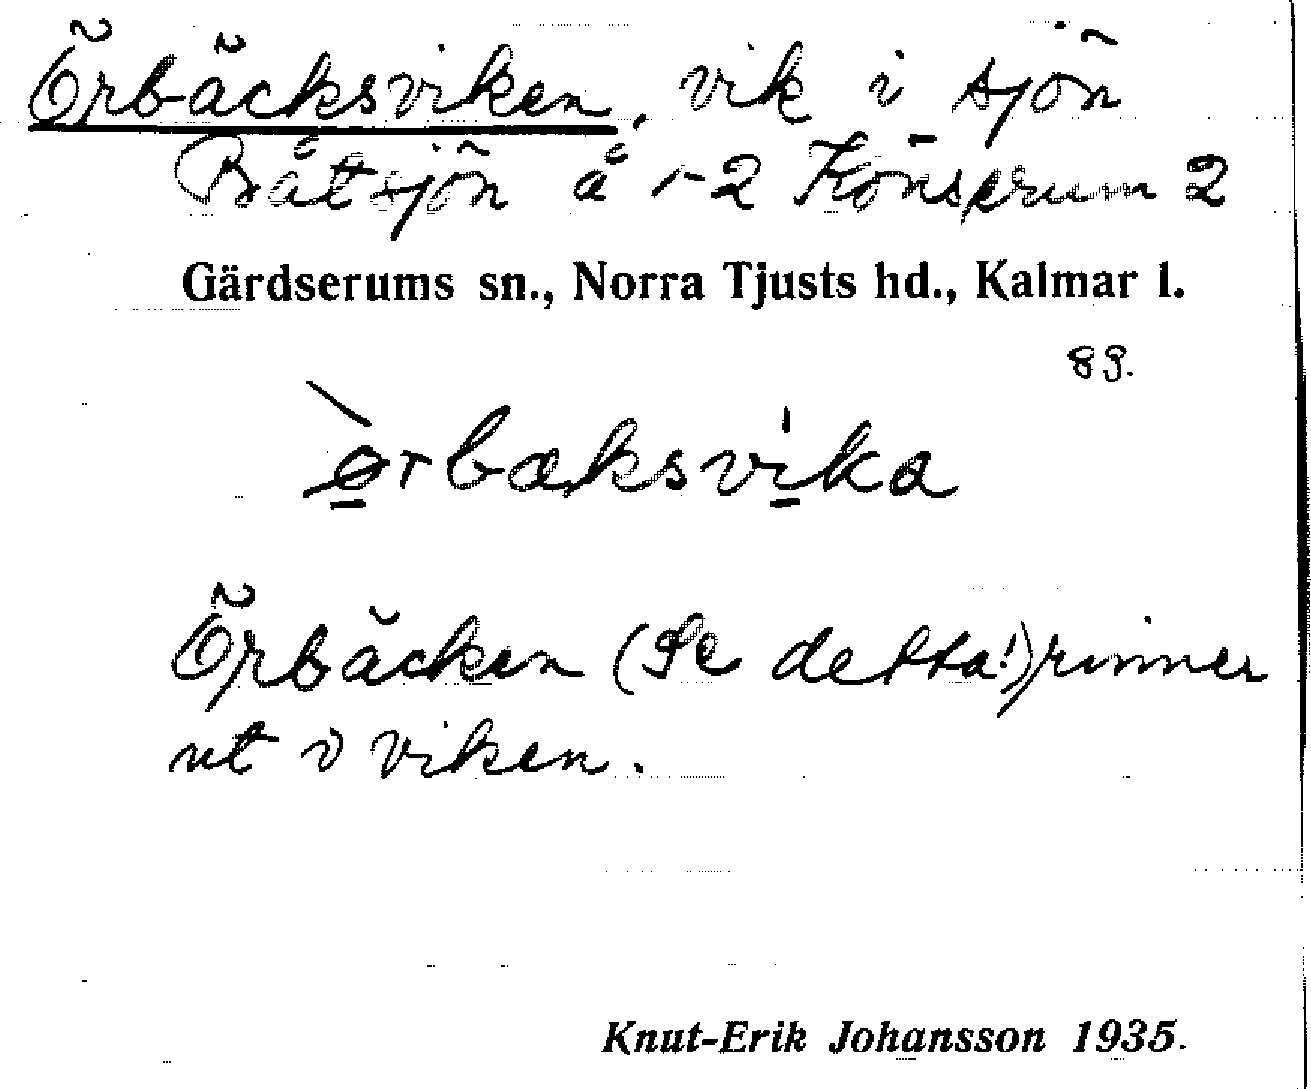 Örbäcksviken, vik i sjön
Båtsjön å 1-2 Könserum 2
Gärdserums sn., Norra Tjusts hd., Kalmar l.
89.
ørbæksvika
Örbäcken (Se detta!) rinner
ut i viken.
Knut-Erik Johansson 1935.